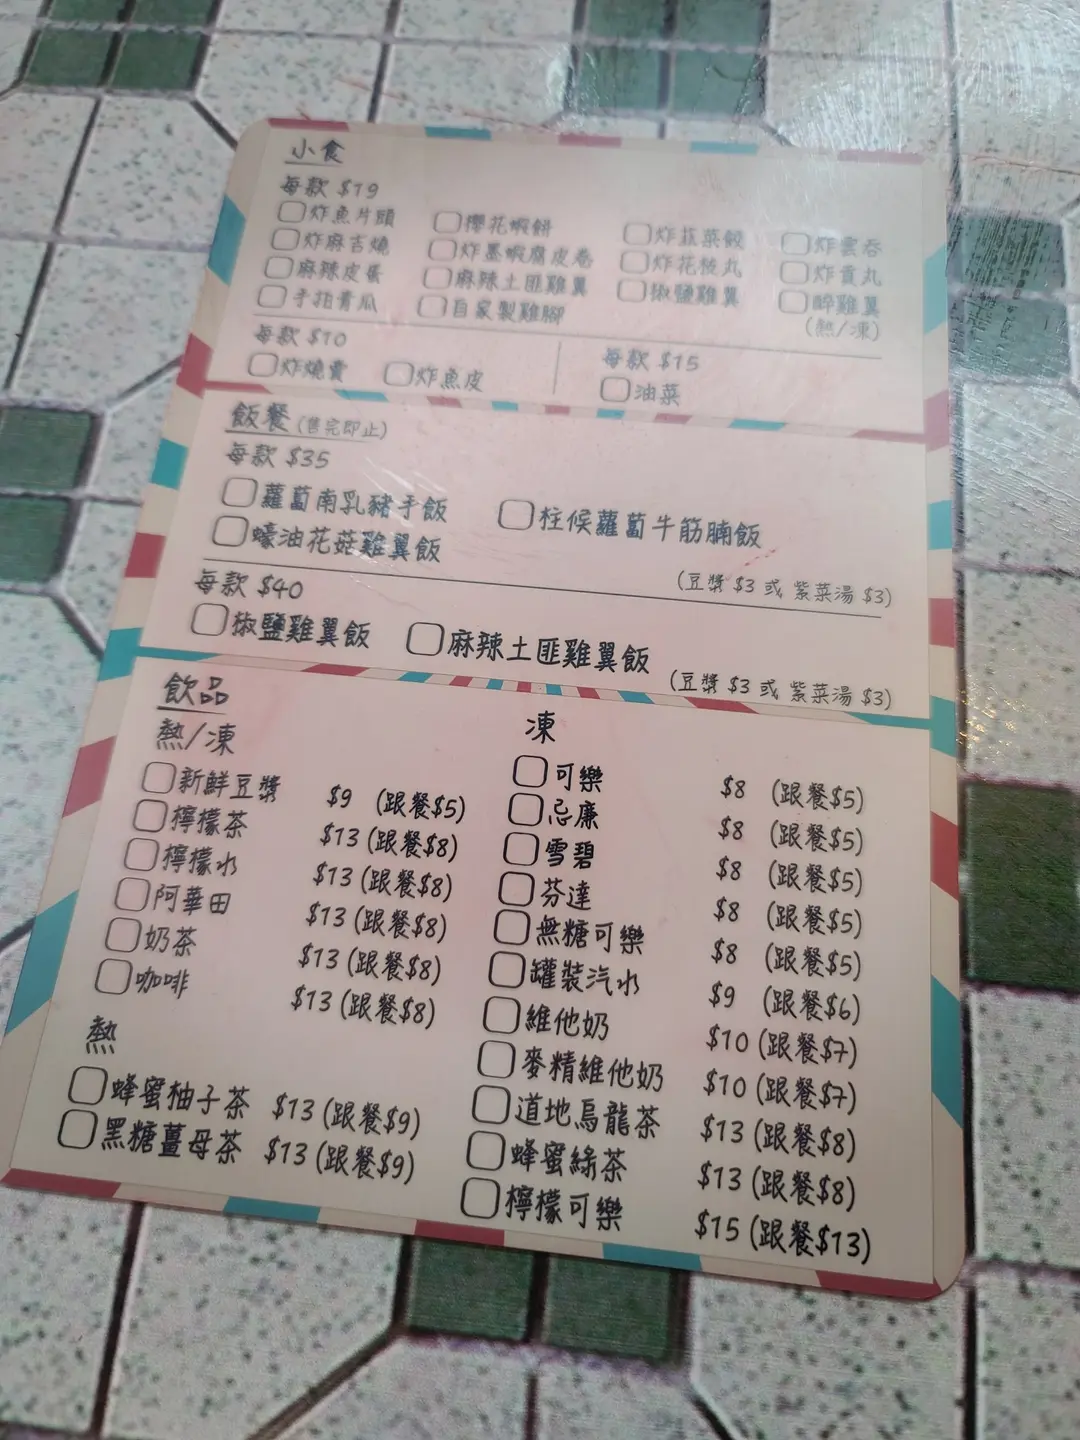 小食
每款 $19
炸魚片頭 櫻花蝦餅 炸韮菜餃 炸雲吞
炸麻吉燒 炸墨蝦腐皮卷 炸花枝丸 炸貢丸
麻辣皮蛋 麻辣土匪雞翼 椒鹽雞翼 醉雞翼
手拍青瓜 自家製雞腳 (熱/凍)
每款 $10 每款 $15
炸燒賣 炸魚皮 油菜
飯餐 (售完即止)
每款 $35
蘿蔔南乳豬手飯 柱候蘿蔔牛筋腩飯
蠔油花菇雞翼飯
(豆漿 $3 或 紫菜湯 $3)
每款 $40
椒鹽雞翼飯 麻辣土匪雞翼飯
(豆漿 $3 或 紫菜湯 $3)
飲品
熱/凍
新鮮豆漿 $9 (跟餐$5)
檸檬茶 $13 (跟餐$8)
檸檬水 $13 (跟餐$8)
阿華田 $13 (跟餐$8)
奶茶 $13 (跟餐$8)
咖啡 $13 (跟餐$8)
熱
蜂蜜柚子茶 $13 (跟餐$9)
黑糖薑母茶 $13 (跟餐$9)
凍
可樂 $8 (跟餐$5)
忌廉 $8 (跟餐$5)
雪碧 $8 (跟餐$5)
芬達 $8 (跟餐$5)
無糖可樂 $8 (跟餐$5)
罐裝汽水 $9 (跟餐$6)
維他奶 $10 (跟餐$7)
麥精維他奶 $10 (跟餐$7)
道地烏龍茶 $13 (跟餐$8)
蜂蜜綠茶 $13 (跟餐$8)
檸檬可樂 $15 (跟餐$13)